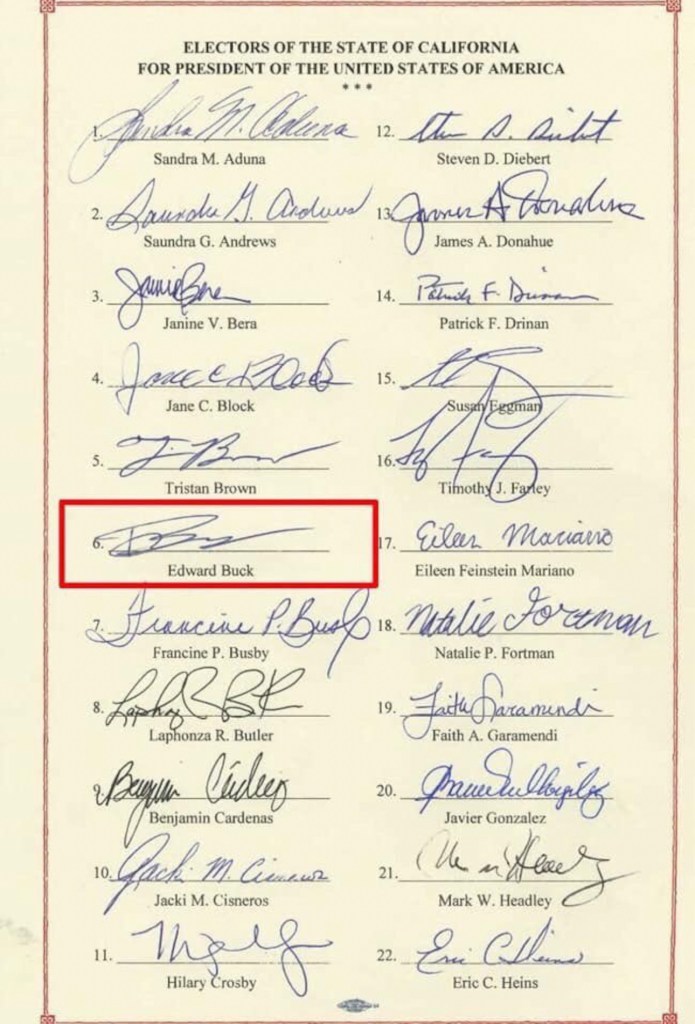 ELECTORS OF THE STATE OF CALIFORNIA
FOR PRESIDENT OF THE UNITED STATES OF AMERICA
* * *
1. Sandra M. Aduna
Sandra M. Aduna
2. Saundra G. Andrews
Saundra G. Andrews
3. Janine Bera
Janine V. Bera
4. Jane C Block
Jane C. Block
5. T. Brown
Tristan Brown
6.
Edward Buck
7. Francine P. Busby
Francine P. Busby
8.
Laphonza R. Butler
9. Benjamin Cardenas
Benjamin Cardenas
10. Jacki M. Cisneros
Jacki M. Cisneros
11.
Hilary Crosby
12. Steven D. Diebert
Steven D. Diebert
13. James A Donahue
James A. Donahue
14. Patrick F. Drinan
Patrick F. Drinan
15.
Susan Eggman
16.
Timothy J. Farley
17. Eileen Mariano
Eileen Feinstein Mariano
18. Natalie Fortman
Natalie P. Fortman
19. Faith Garamendi
Faith A. Garamendi
20.
Javier Gonzalez
21.
Mark W. Headley
22. Eric C. Heins
Eric C. Heins